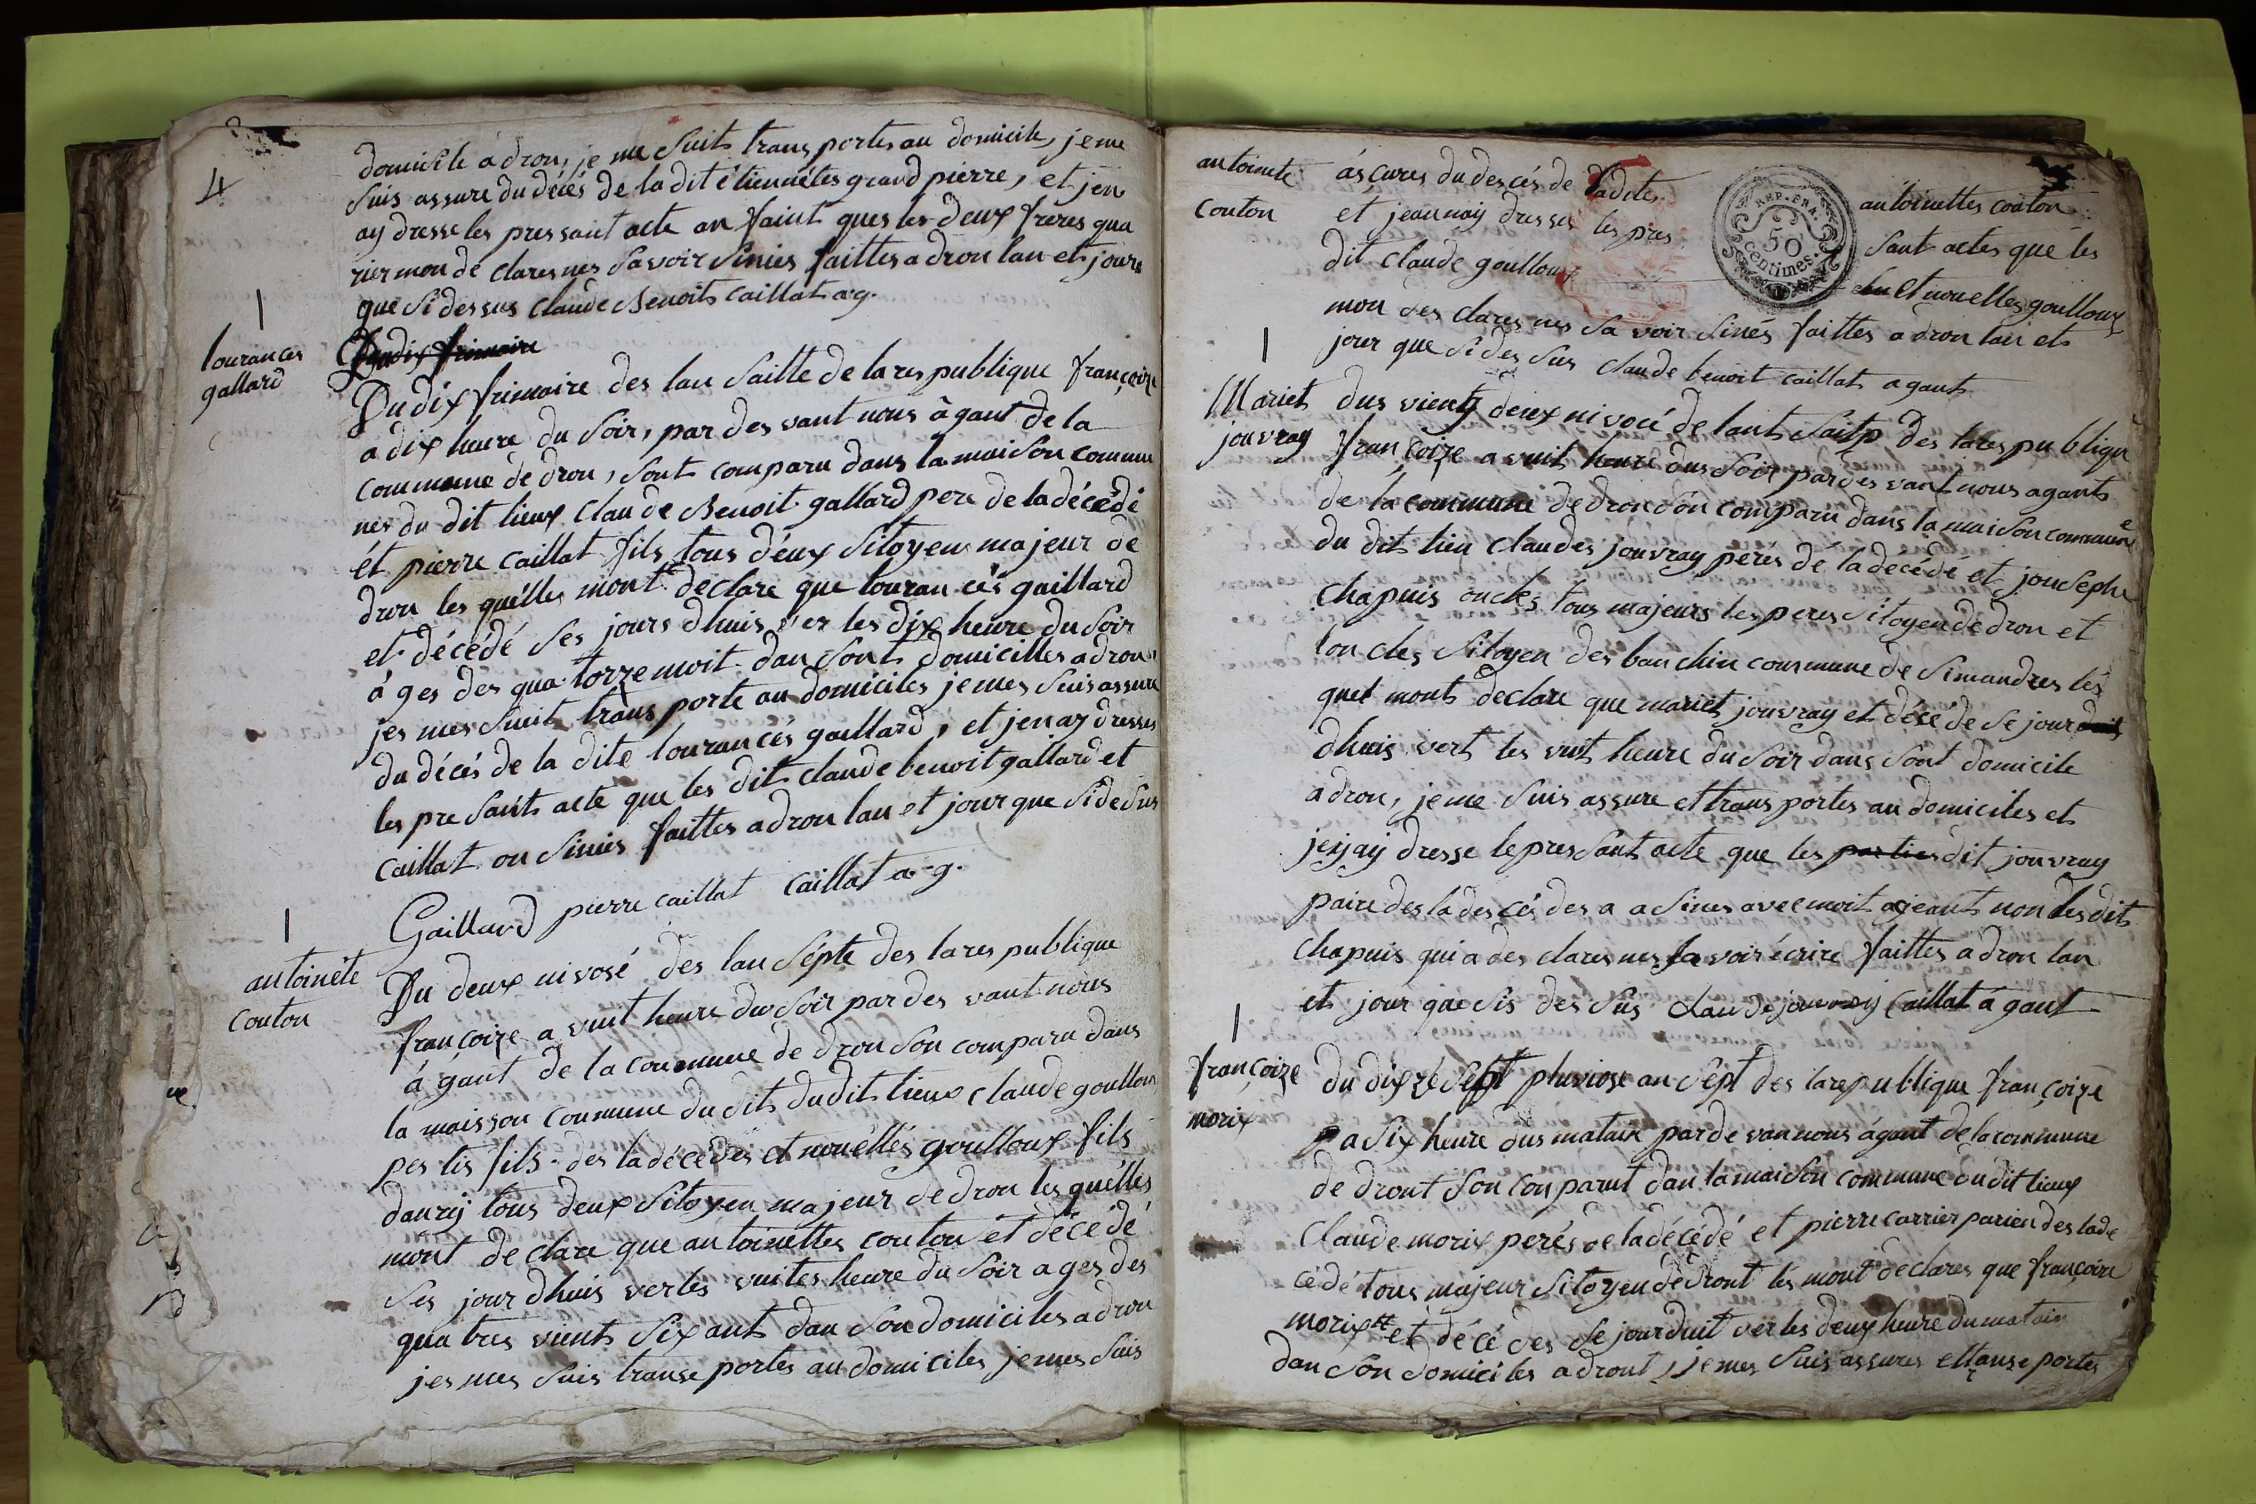 4
domicile a dron, je me suit trans portes au domicile, je me
suis assure du décés de la dit étiennétes grand pierre, et jen
ay dresse les pres sant acte an faint ques les deux freres qua
rier mon de clares nes savoir sinies faittes a dron lan et jours
que si dessus claude Benoits caillat a.g.
lourances
gallard
Du dix frimaire
Du dix frimaire des lan saitte de la res publique françoize
a dix heure du soir, par des vant nous àgant de la
commune de dron, sont comparu dans la maison commu
nes du dit lieux Claude Benoit gallard pere de la décédé
ét pierre caillat fils tous déux sitoyen majeur de
dron les quélles mont declare que louran cés gaillard
et décédé ses jours dhuis ver les dix heure du soir
a ges des qua torze moit dan sont domicilles a dron,
jes mes suit trans porte au domiciles je mes suis assure
du décés de la dite lourancés gaillard, et jen ay dresses
les pre sants acte que les dit claude benoit gallard et
caillat on sinies faittes a dron lan et jour que si desus
Gaillard pierre caillat caillat a-g.
antoinéte
couton
Du deux nivosé des lan sépte des la res publique
françoize a vuit heure du soir par des vant nous
á gant de la commune de dron son comparu dans
la maisson commune du dit du dit lieux claude goulloux
pes tis fils des la décédés et nouelles goulloux fils
danrÿ tous deux sitoyen majeur de dron les quélles
mont de clare que antoinettes couton ét décédé
ses jour dhuis ver les vuites heure du soir a ges des
qua tres vients six ants dan son domiciles a dron
jes mes suis transe portes au domiciles je mes suis
antoinete
couton
ás cures du des cés de ladite antoinettes couton
et jean nay dresses les pres sant actes que les
dit claude goulloux et nouelles goulloux
REP. FRA.
50
centimes.
mon des clares nes sa voir sinés faittes a dron lan et
jour que si des sus claude benoit caillat agant
Mariet
jouvray
dus vient deux ni vocé de lant saitp des lares publique
françoize a vuit heure dus soir par des vant nous agants
de la commune de dron són comparu dans la maison commune
du dit lieu claudes jouvray peres dé la décédé et jouséphe
chapuis oncles tous majeurs les peres sitoyen de dron et
lon cles sitoyen des ban chin commune de simandres les
quel monts declare que mariet jouvray et décéde se jour
dhuis vert les vuit heure du soir dans sont domicile
a dron, je me suis assure et trans portes au domiciles et
jeijaÿ dresse le pres sant acte que les parties dit jouvray
paire des la des cés des a a sines avec moit ageant non les dit
chapuis qui a des clares nes savoir écrire faittes a dron lan
et jour que sis des sus claude jouvray caillat á gant
françoize
morix
du dix ze sept pluviose an sépt des la republique françoize
a six heure dus mataix par de van nous ágant de la commune
de dront son conparut dan la maison commune du dit lieux
claude morix perés de la décédé et pierre carrier parien des lade
cédé tous majeur sitoyen de dront lés mont declares que françoize
morix et décédes se jour duit ver les deux heure du matain
dan son domiciles a dront, je mes suis assures et transe portes